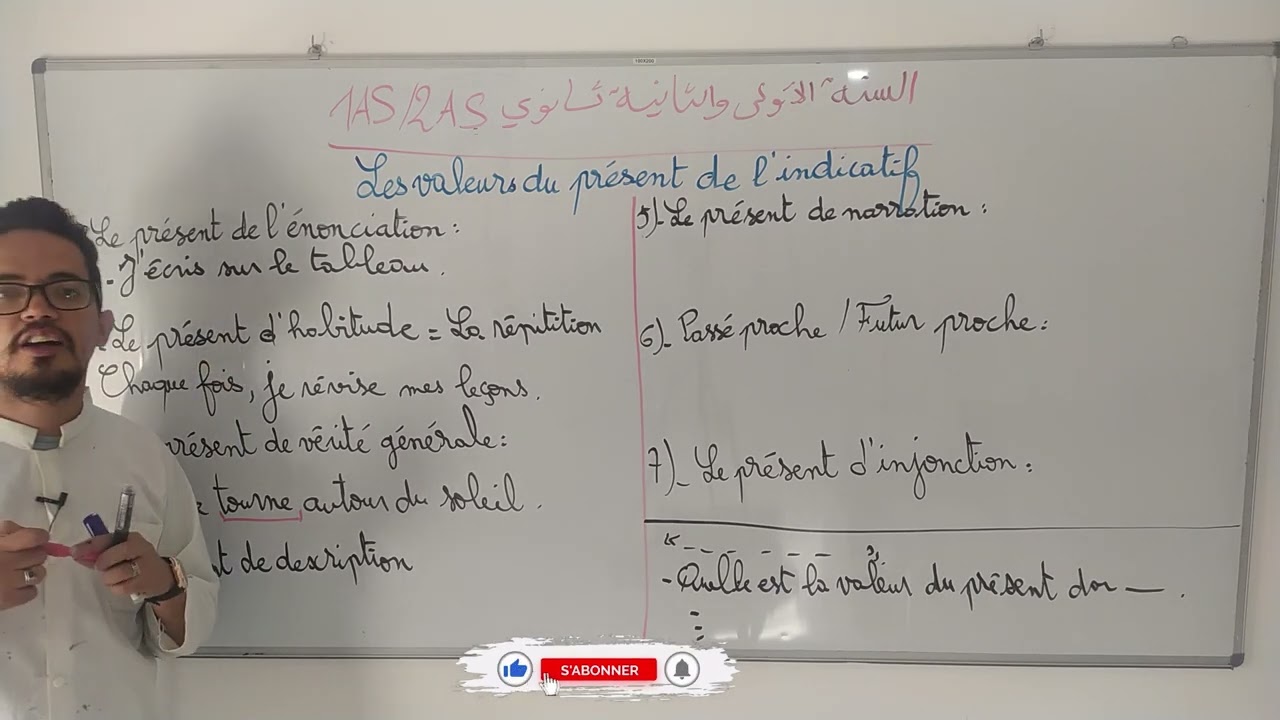 السنة الأولى والثانية ثانوي 1AS/2AS
Les valeurs du présent de l'indicatif
Le présent de l'énonciation :
- J'écris sur le tableau.
Le présent d'habitude = La répitition
Chaque fois, je révise mes leçons.
présent de vérité générale :
tourne autour du soleil.
de dexription
5)- Le présent de narration :
6)- Passé proche / Futur proche :
7)- Le présent d'injonction :
- Quelle est la valeur du présent
S'ABONNER